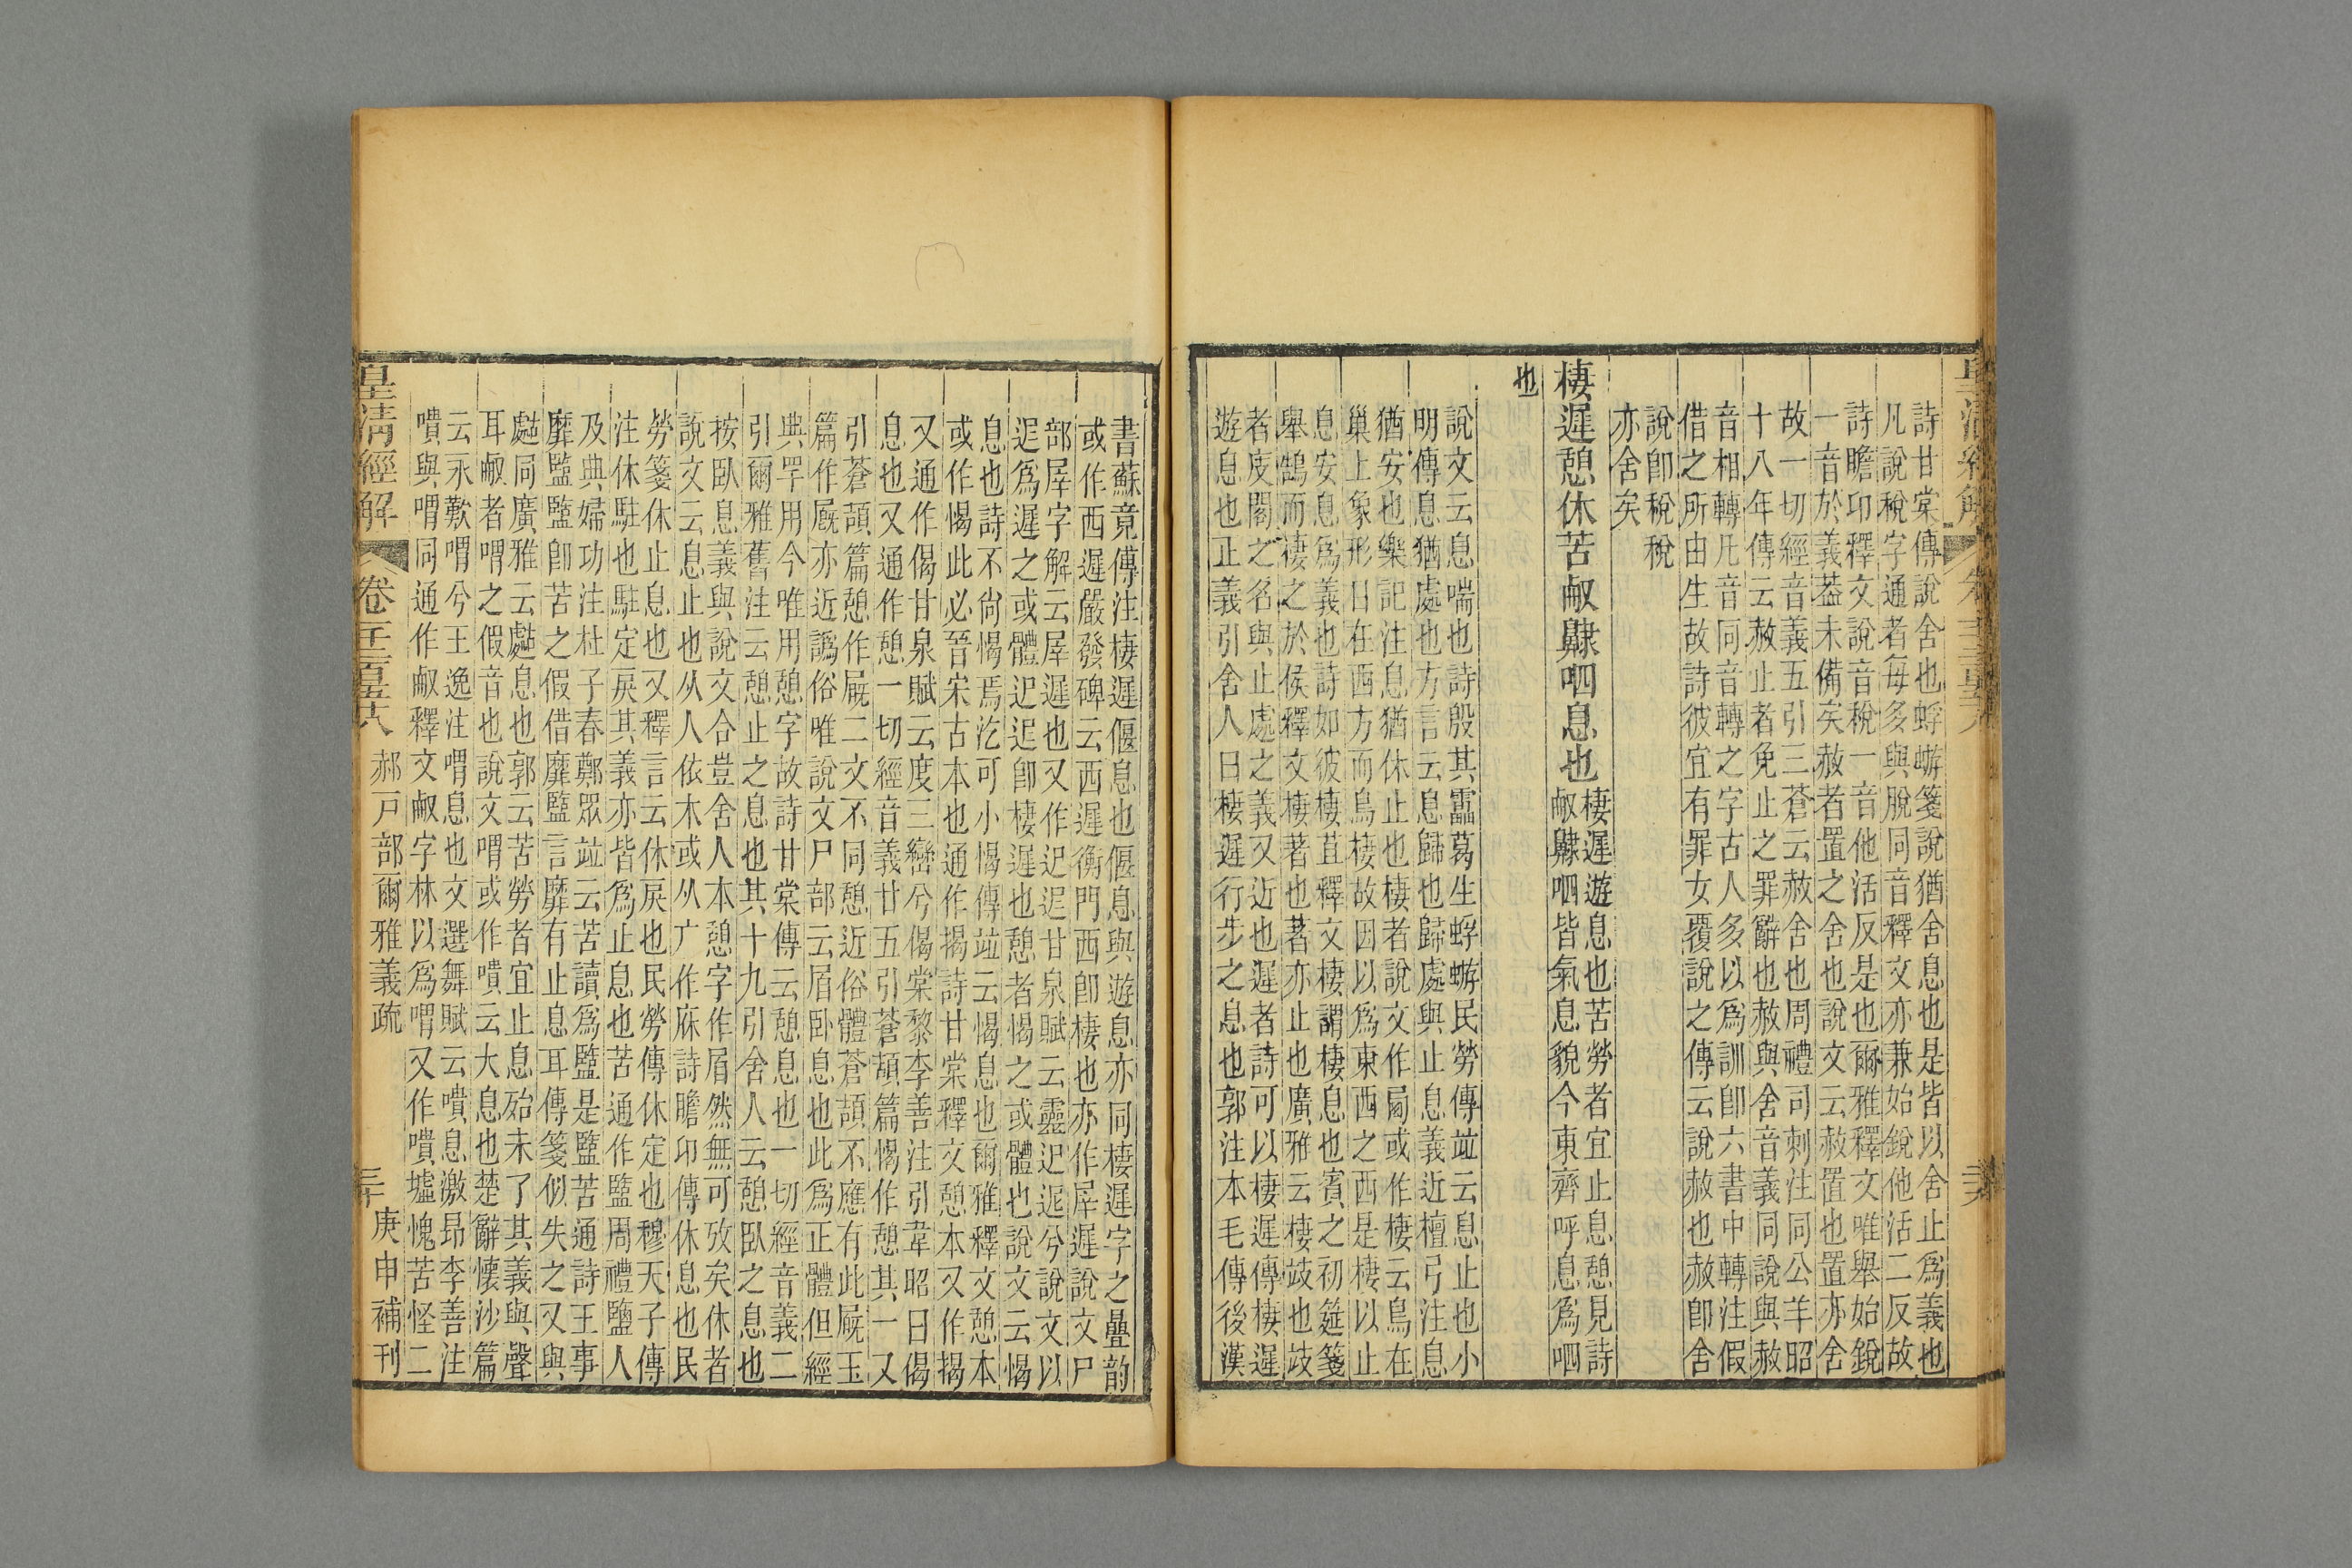 詩甘棠傳說舍也蜉蝣箋說猶舍息也是皆以舍止爲義也
凡說稅字通者每多與脫同音釋文亦兼始銳他活二反故
詩瞻卬釋文說音稅一音他活反是也爾雅釋文唯舉始銳
一音於義葢未備矣赦者置之舍也說文云赦置也置亦舍
故一切經音義五引三蒼云赦舍也周禮司刺注同公羊昭
十八年傳云赦止者免止之罪辭也赦與舍音義同說與赦
音相轉凡音同音轉之字古人多以爲訓卽六書中轉注假
借之所由生故詩彼宜有罪女覆說之傳云說赦也赦卽舍
說卽稅稅
亦舍矣
棲遲憩休苦㕞䶓呬息也
棲遲遊息也苦勞者宜止息憩見詩
㕞䶓呬皆氣息貌今東齊呼息爲呬
也
說文云息喘也詩殷其靁葛生蜉蝣民勞傳竝云息止也小
明傳息猶處也方言云息歸也歸處與止息義近檀弓注息
猶安也樂記注息猶休止也棲者說文作㢴或作棲云鳥在
巢上象形日在西方而鳥棲故因以爲東西之西是棲以止
息安息爲義也詩如彼棲苴釋文棲謂棲息也賓之初筵箋
舉鵠而棲之於侯釋文棲著也著亦止也廣雅云棲攱也攱
者庋閣之名與止處之義又近也遲者詩可以棲遲傳棲遲
遊息也正義引舍人曰棲遲行步之息也郭注本毛傳後漢
書蘇竟傳注棲遲偃息也偃息與遊息亦同棲遲字之疊韵
或作西遲嚴發碑云西遲衡門西卽棲也亦作犀遲說文尸
部犀字解云犀遲也又作迡迟甘泉賦云靈迡迟兮說文以
迟爲遲之或體迡迟卽棲遲也憩者愒之或體也說文云愒
息也詩不尙愒焉汔可小愒傳竝云愒息也爾雅釋文憩本
或作愒此必晉宋古本也通作揭詩甘棠釋文憩本又作揭
又通作偈甘泉賦云度三巒兮偈棠黎李善注引韋昭曰偈
息也又通作憩一切經音義廿五引蒼頡篇愒作憩其一又
引蒼頡篇憩作㞒二文不同憩近俗體蒼頡不應有此㞒玉
篇作㞒亦近譌俗唯說文尸部云㞒卧息也此爲正體但經
典罕用今唯用憩字故詩甘棠傳云憩息也一切經音義二
引爾雅舊注云憩止之息也其十九引舍人云憩臥之息也
按臥息義與說文合豈舍人本憩字作㞒然無可攷矣休者
說文云息止也从人依木或从广作庥詩瞻卬傳休息也民
勞箋休止息也又釋言云休戾也民勞傳休定也穆天子傳
注休駐也駐定戾其義亦皆爲止息也苦通作盬周禮鹽人
及典婦功注杜子春鄭眾竝云苦讀爲盬是盬苦通詩王事
靡盬盬卽苦之假借靡盬言靡有止息耳傳箋似失之又與
㽎同廣雅云㽎息也郭云苦勞者宜止息殆未了其義與聲
耳㕞者喟之假音也說文喟或作嘳云大息也楚辭懷沙篇
云永歎喟兮王逸注喟息也文選舞賦云嘳息激昂李善注
嘳與喟同通作㕞釋文㕞字林以爲喟又作嘳墟愧苦怪二
皇淸經解
郝戶部爾雅義疏
庚申補刊